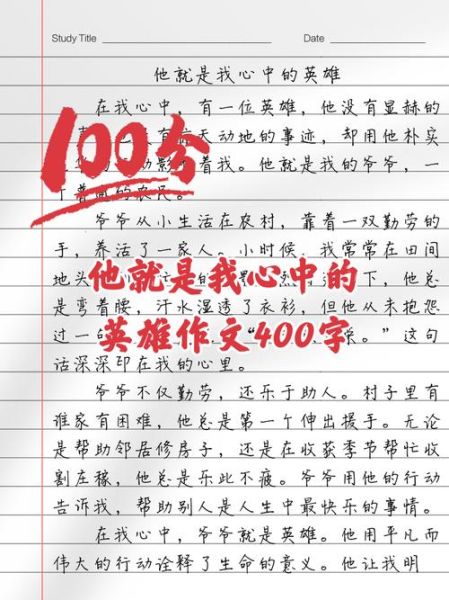 Study Title Date
他就是我心中的英雄
在我心中，有一位英雄，他没有显赫的
天动地的事迹，却用他朴实
着我。他就是我的爷爷，一
个普通的农民。
100分
爷爷从小生活在农村，靠着一双勤劳的
手，养活了一家人。小时候，我常常在田间
地头 下，他总
他就是我心中的
是弯着腰，汗水湿透了衣衫，但他从未抱怨
过一 。”这句
英雄作文400字
话深深印在我的心里。
爷爷不仅勤劳，还乐于助人。村子里有
谁家有困难，他总是第一个伸出援手。无论
是帮助邻居修房子，还是在收获季节帮忙收
割庄稼，他总是乐此不疲。爷爷用他的行动
告诉我，帮助别人是人生中最快乐的事情。
在我心中，爷爷就是英雄。他用平凡而
伟大的行动诠释了生命的意义。他让我明